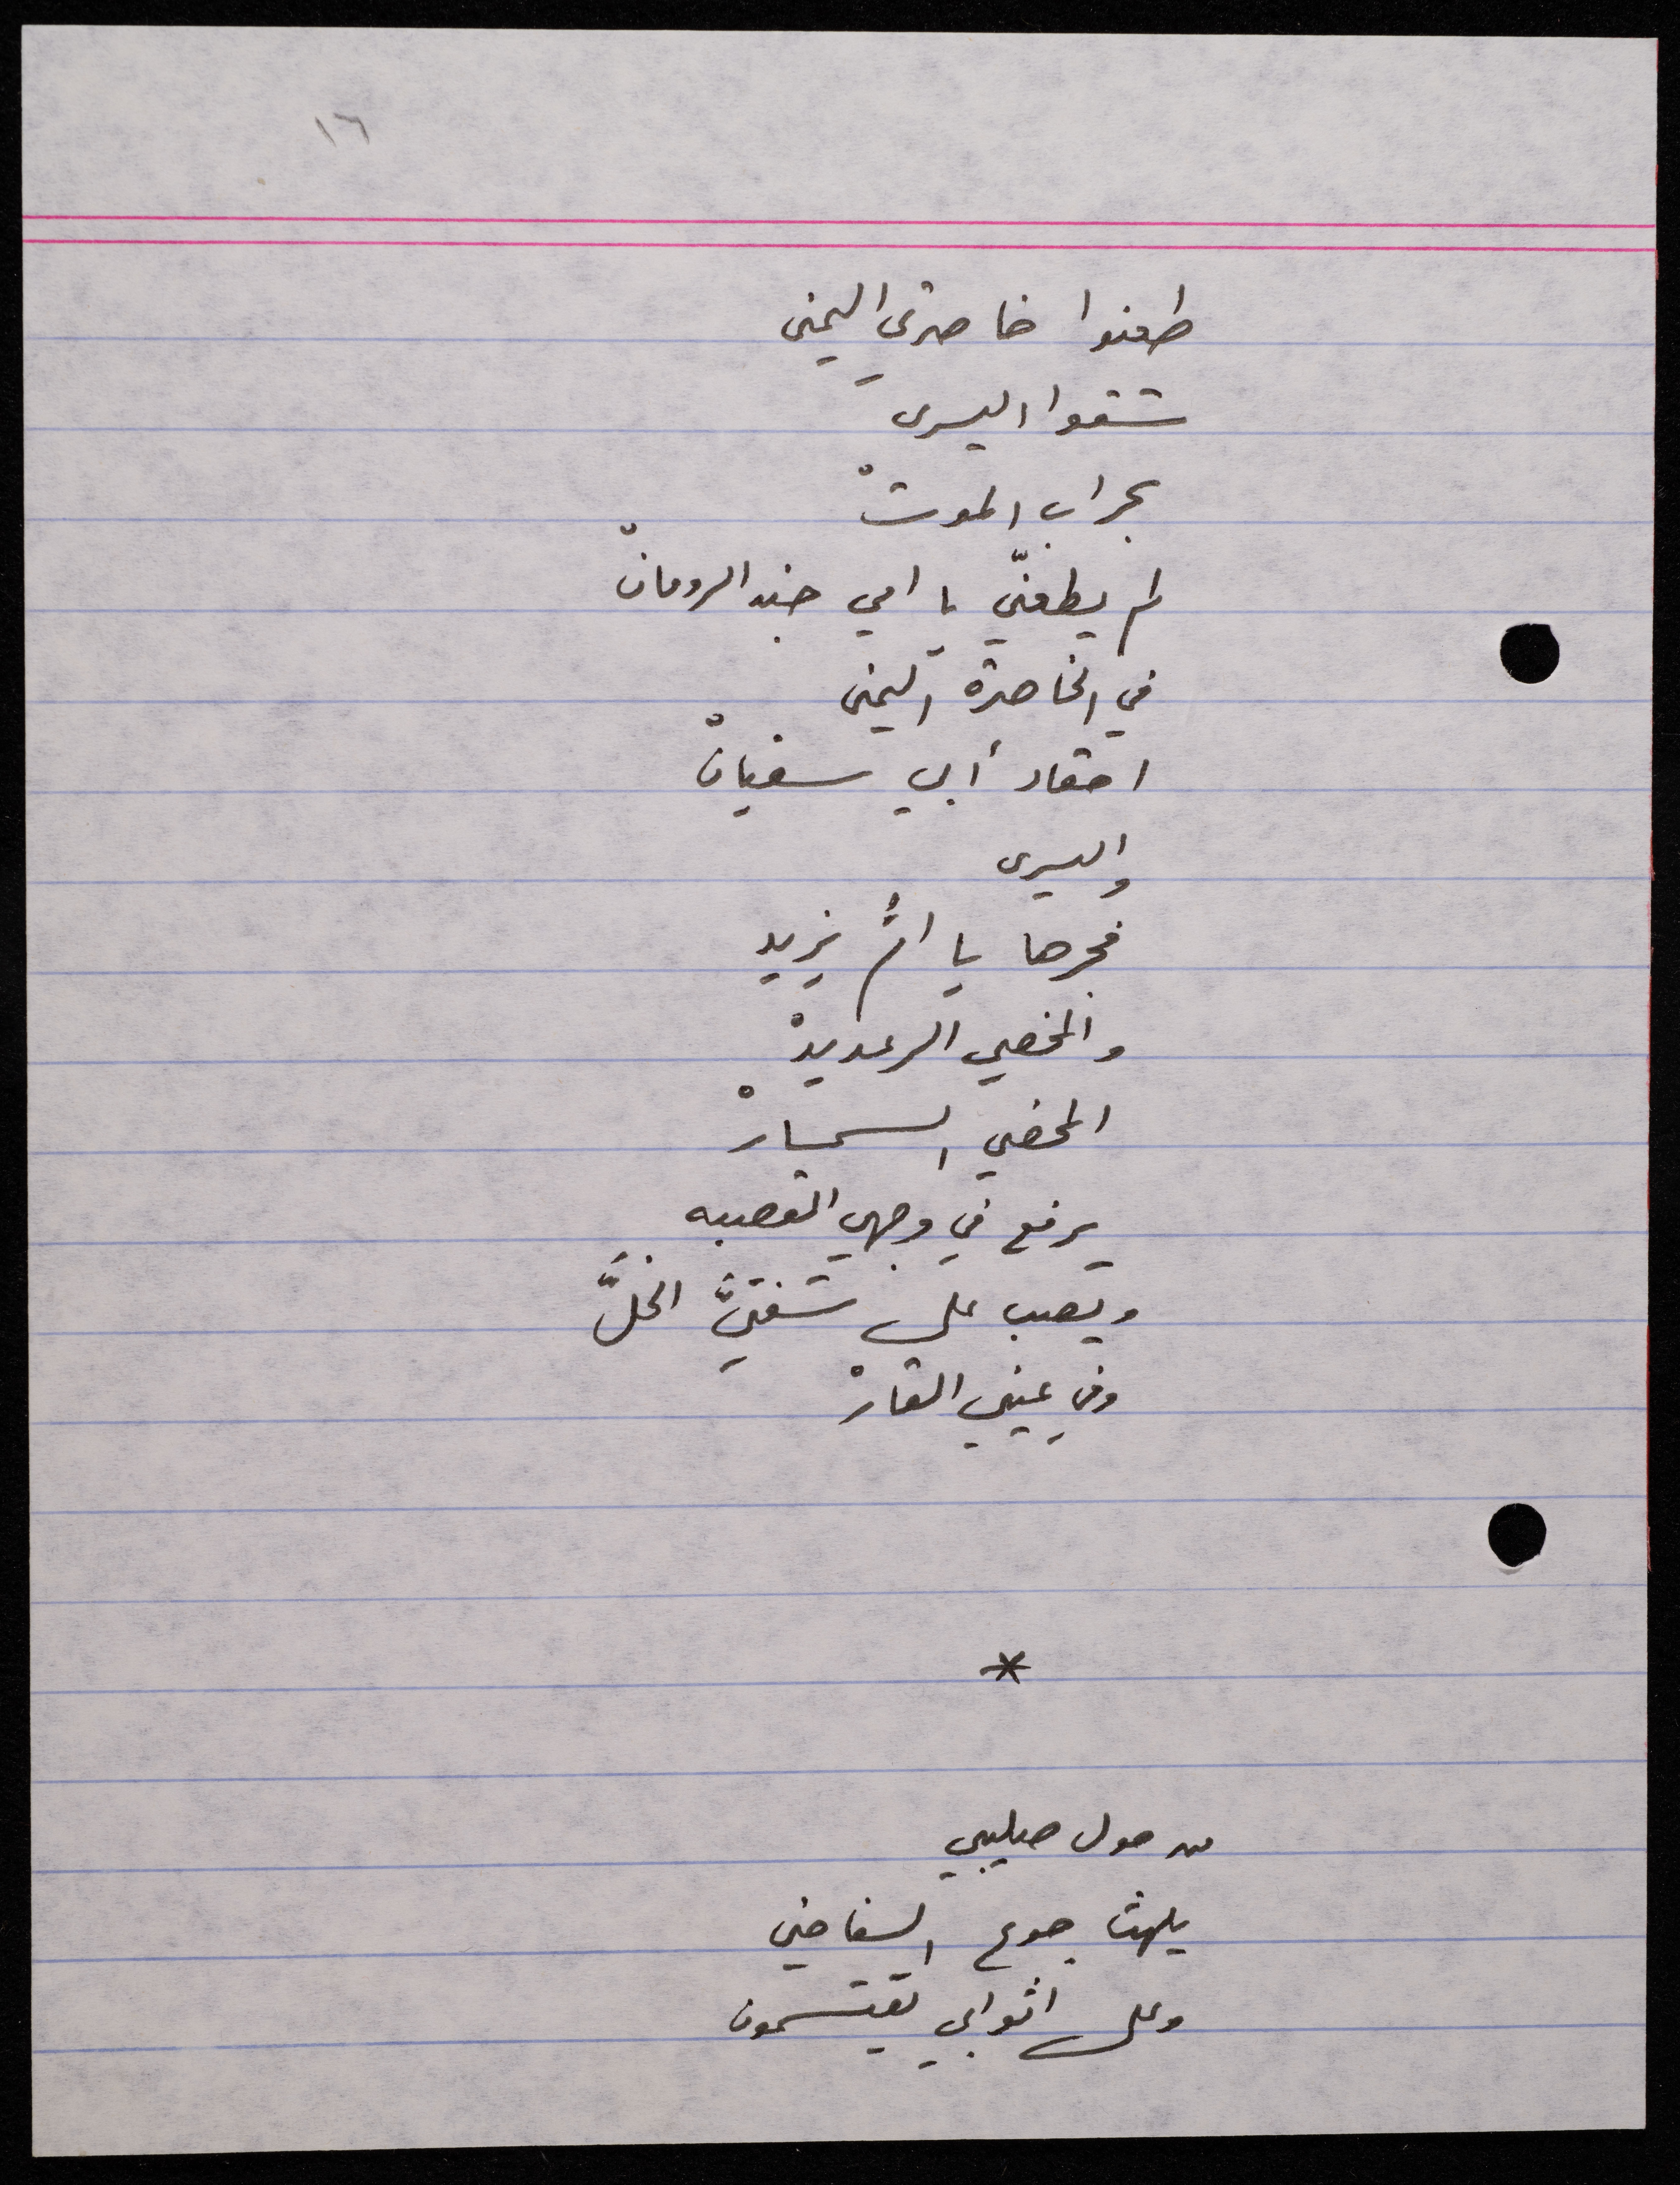 ١٦
طعنوا خاصرتي اليمنى
شقوا اليسرى
بحراب الموتْ
لم يطعنّي يا امي جند الرومانْ
في الخاصرة اليمنى
احقاد أبي سفيانْ
واليسرى
فجرها يا أمُّ يزيد
والمخصي الرعديدْ
المخصي السمسارْ
يرفع في وجهي القصبه
ويصب على شفتيَّ الخلَّ
وفي عيني القارْ
*
من حول صليبي
يلهث جوع السفاحين
وعلى اثوابي يقتسمون